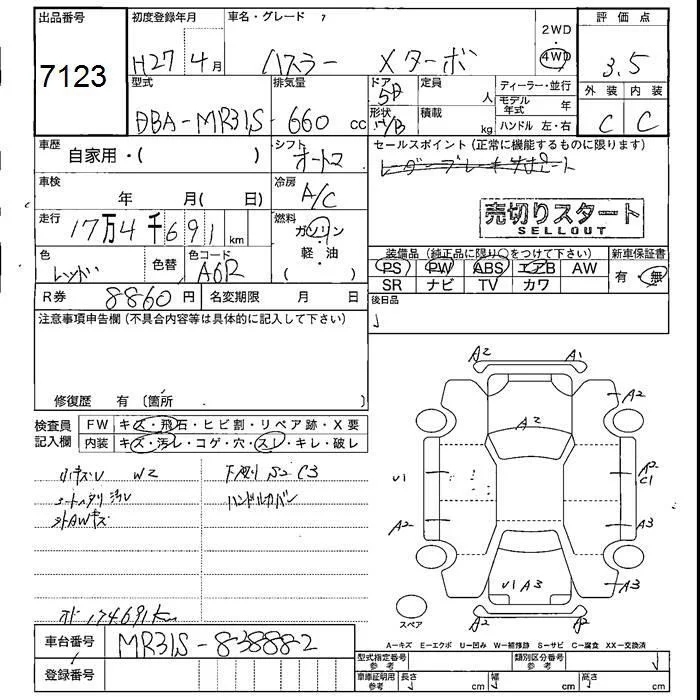 出品番号 初度登録年月 車名・グレード ｱ 2WD・4WD 評価点
7123 H27 4月 ハスラー Xターボ 3.5
型式 排気量 ドア 5D 定員 人 ディーラー・並行 外装 内装
DBA-MR31S- 660 cc 形状 積載 kg モデル年式 年 C C
ハンドル 左・右
車歴 自家用・( ) シフト オートマ セールスポイント (正常に機能するものに限ります)
レーダーブレーキサポート
車検 年 月( 日) 冷房 A/C
売切りスタート
SELLOUT
走行 17万4千691km 燃料 ガソリン・軽・油 ( )
色 レッド 色替 色コード A6R
装備品 (純正品に限り○をつけて下さい) 新車保証書
PS PW ABS エアB AW 有 無
SR ナビ TV カワ
R券 8860円 名変期限 月 日 後日品
注意事項申告欄 (不具合内容等は具体的に記入して下さい)
修復歴 有 〔箇所 〕
検査員記入欄 FW キズ・飛石・ヒビ割・リペア跡・X要
内装 キズ・汚レ・コゲ・穴・スレ・キレ・破レ
小キズU W2 下廻り S2 C3
シートヘタリ 汚レ ハンドルカバー
外AWキズ
A2 A1
A2
A2
U1 A2 C1
A2 A3
U1 A3 A3
A2
スペア
メーター 174,691km
A-キズ E-エクボ U-凹み W-補修跡 S-サビ C-腐食 XX-交換済
車台番号 MR31S-838882
型式指定番号 参考 類別区分番号 参考
登録番号
車庫証明用 参考 長さ cm 幅 cm 高さ cm